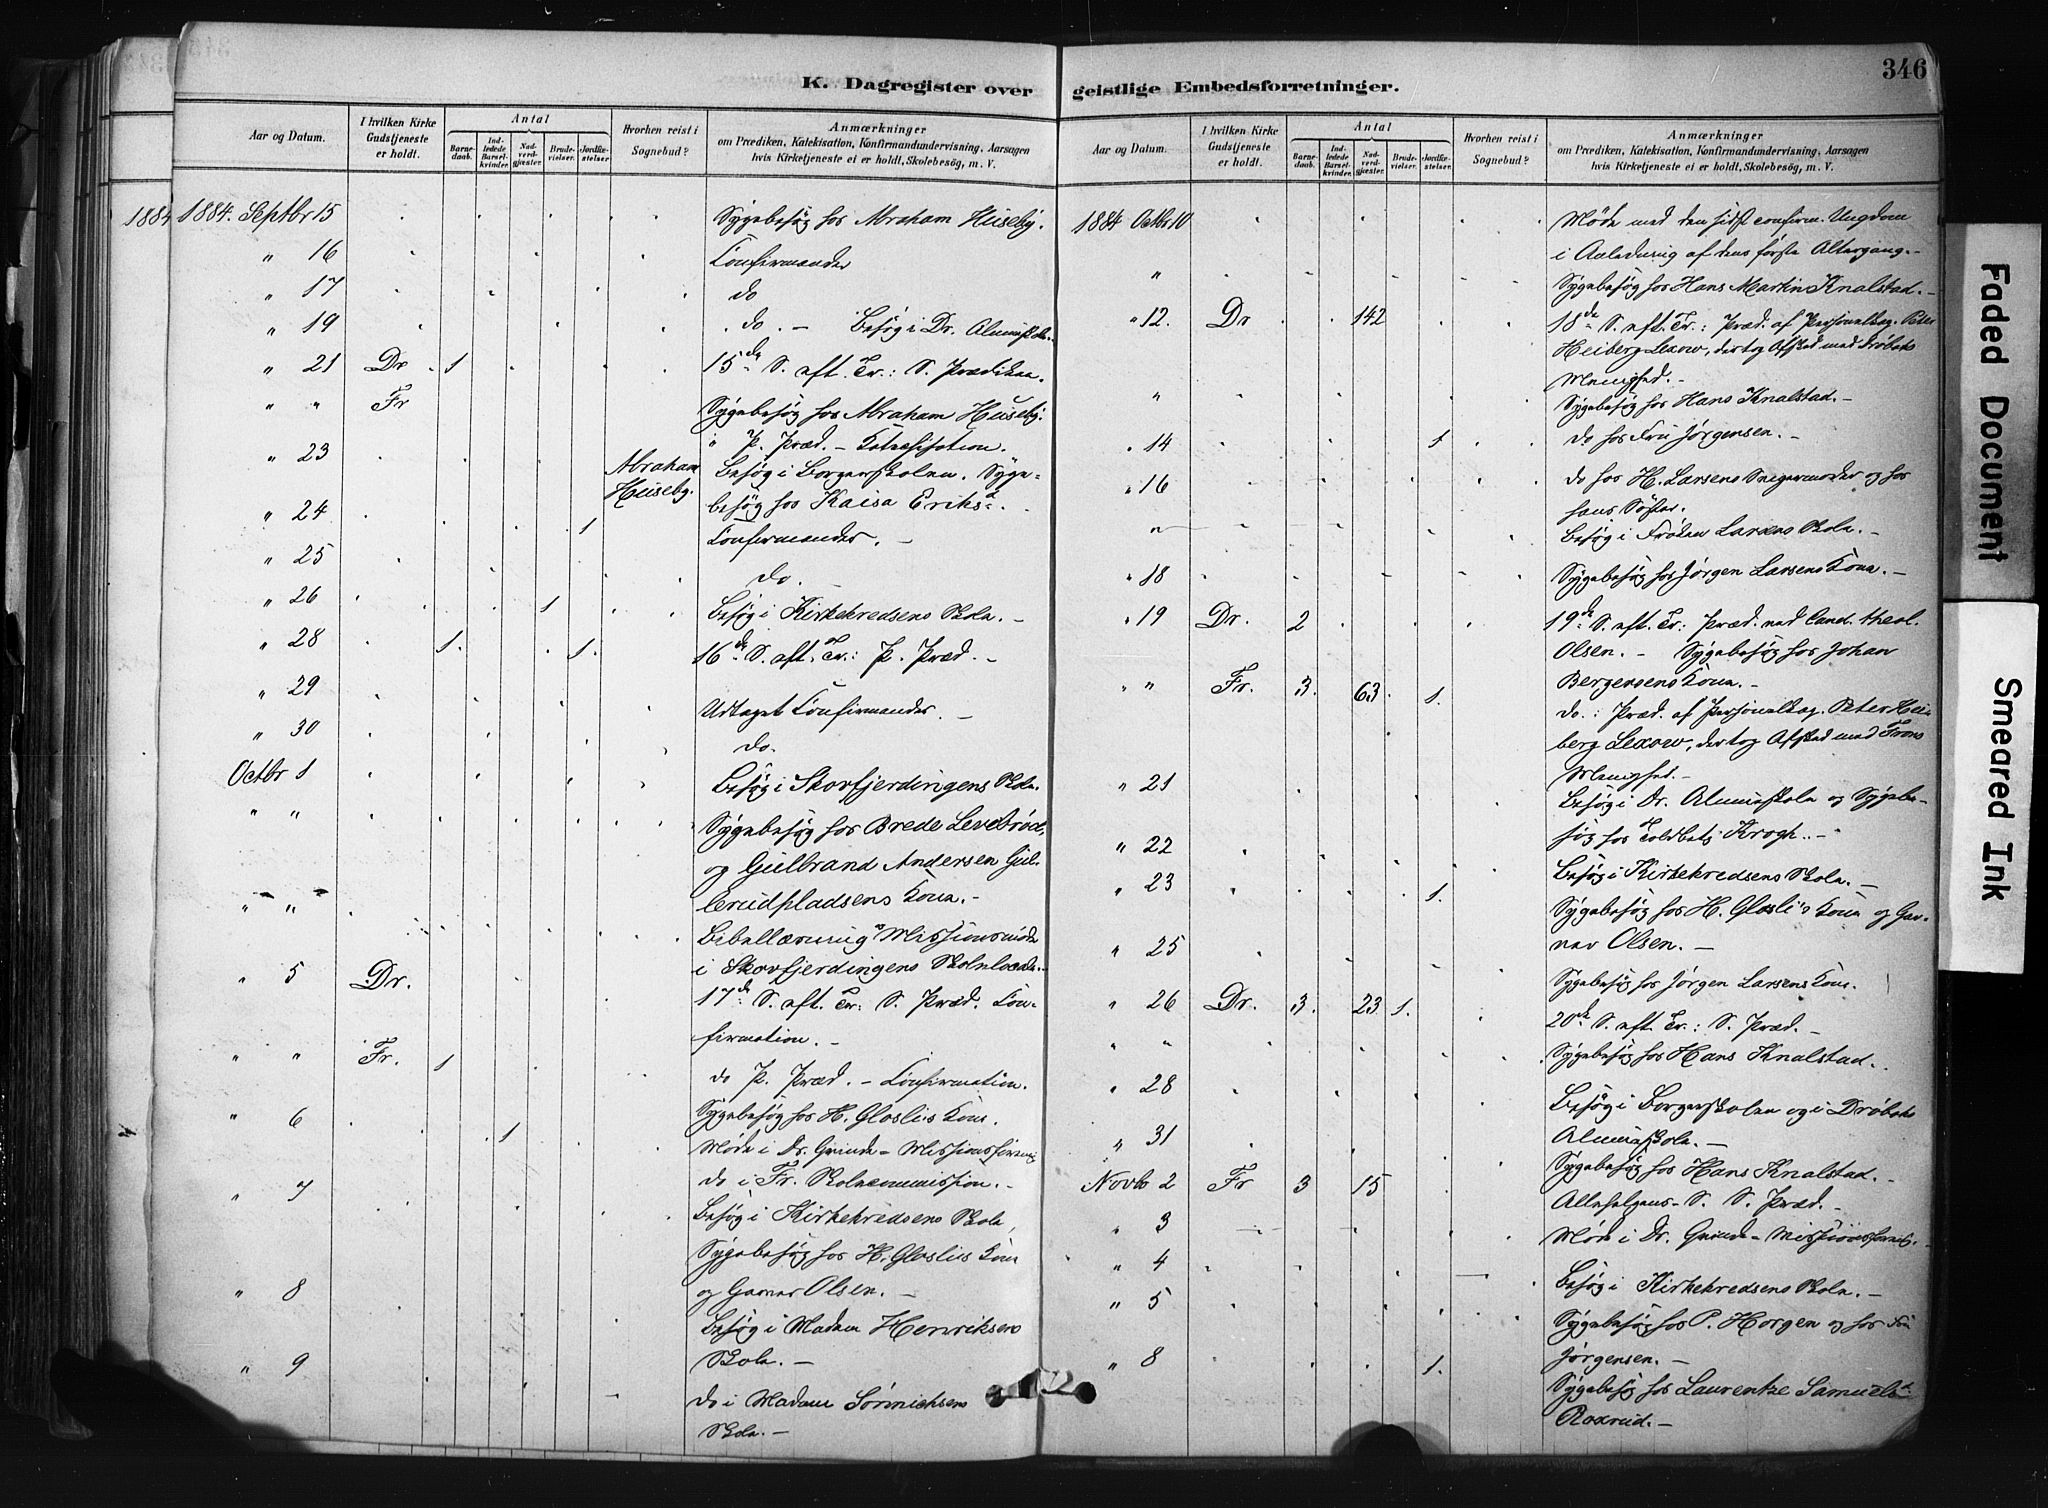 K. Dagregister over geistlige Embedsforretninger.
346
Aar og Datum.
I hvilken Kirke Gudstjeneste er holdt.
Antal
Barnedaab.
Indledede Barselkvinder.
Nadverdgjæster.
Brudevielser.
Jordfæstelser
Hvorhen reist i Sognebud?
Anmærkninger
om Prædiken, Katekisation, Konfirmandundervisning, Aarsagen
hvis Kirketjeneste ei er holdt, Skolebesög, m. V.
1884 1884. Septbr 15 Sygebesøg hos Abraham Huseby.
" 16 Confirmander
" 17 do
" 19 do. – Besøg i Dr. Almueskole.
" 21 Dr 1 15de S. aft. Tr.: S. Prædiken.
" " Fr Sygebesøg hos Abraham Huseby.
" P. Præd. – Katechisation.
" 23 Abraham Huseby. Besøg i Borgerskolen. Sygebesøg
hos Kaisa Eriksd.
" 24 1 Confirmander. –
" 25 do.
" 26 1 Besøg i Kirkekredsens Skole. –
" 28 1. 1. 16de S. aft. Tr.: P. Præd. –
" 29 Udtaget Confirmander. –
" 30 do.
Octbr 1 Besøg i Skovfjerdingens Skole.
" " Sygebesøg hos Brede Levebrød,
og Gulbrand Andersen Gul-
lerudpladsens Kone. –
" " Bibellæsning Missionsmøde
i Skovfjerdingens Skolelocale. –
" 5 Dr. 17de S. aft. Tr: S. Præd. Con-
firmation. –
" " Fr. 1 do P. Præd. – Confirmation.
" 6 1 Sygebesøg hos H. Gloslis Kone.
Møde i Dr. Qvinde-Missionsforening
" 7 do i Fr. Skolecommission. –
Besøg i Kirkekredsens Skole,
Sygebesøg hos H. Gloslis Kone
" 8 og Garver Olsen. –
Besøg i Madam Henriksens
" 9 Skole. –
do i Madam Sörnichsens
Skole. –
Aar og Datum.
I hvilken Kirke Gudstjeneste er holdt.
Antal
Barnedaab.
Indledede Barselkvinder.
Nadverdgjæster.
Brudevielser.
Jordfæstelser.
Hvorhen reist i Sognebud?
Anmærkninger
om Prædiken, Katekisation, Konfirmandundervisning, Aarsagen
hvis Kirketjeneste ei er holdt, Skolebesög, m. V.
1884 Octbr 10 Møde med den sidst confirm. Ungdom
i Anledning af dens første Altergang. –
" Sygebesøg hos Hans Martin Knalstad. –
" 12. Dr 142 18de S. aft. Tr.: Præd. af Personelkap. Peter
Heiberg Lexow, der tog Afsked med Drøbaks
Menighed. –
" Sygebesøg hos Hans Knalstad. –
" 14 1 do hos Fru Jørgensen. –
" 16 do hos H. Larsens Svigermoder og hos
hans Søster.
" Besøg i Frøken Larsens Skole. –
" 18 Sygebesøg hos Jørgen Larsens Kone. –
" 19 Dr. 2 19de S. aft. Tr: Præd. ved Cand. theol.
Olsen. – Sygebesøg hos Johan
Bergersens Kone. –
" " Fr. 3. 63 1. do.: Præd. af Personelkap. Peter Hei-
berg Lexow, der tog Afsked med Frons
Menighed. –
" 21 Besøg i Dr. Almueskole og Sygebe-
søg hos Toldbetj. Krogh. –
" 22 Besøg i Kirkekredsens Skole. –
" 23 1. Sygebesøg hos H. Glosli's Kone og Gar-
ver Olsen. –
" 25 Sygebesøg hos Jørgen Larsens Kone.
" 26 Dr. 3. 23 1. 20de S. aft. Tr.: S. Præd. –
" " Sygebesøg hos Hans Knalstad.
" 28 Besøg i Borgerskolen og i Drøbaks
Almueskole. –
" 31 Sygebesøg hos Hans Knalstad. –
Novb 2 Fr 3 15 Allehelgens-S. S. Præd. –
" 3 Møde i Dr. Qvinde-Missionsforening.
" 4 Besøg i Kirkekredsens Skole. –
" 5 Sygebesøg hos P. Horgen og hos Fru
Jørgensen. –
" 8 1. Sygebesøg hos Laurentze Samuelsd.
Roxrud. –
Faded Document
Smeared Ink